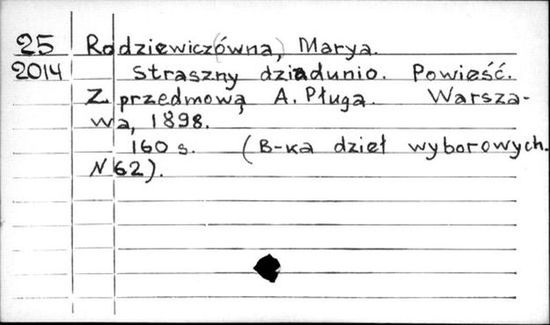 25 Rodziewicz(ówna), Marya.
2014 Straszny dziadunio. Powieść.
Z przedmową A. Pługa. Warsza-
wa, 1898.
160 s. (B-ka dzieł wyborowych.
N 62).